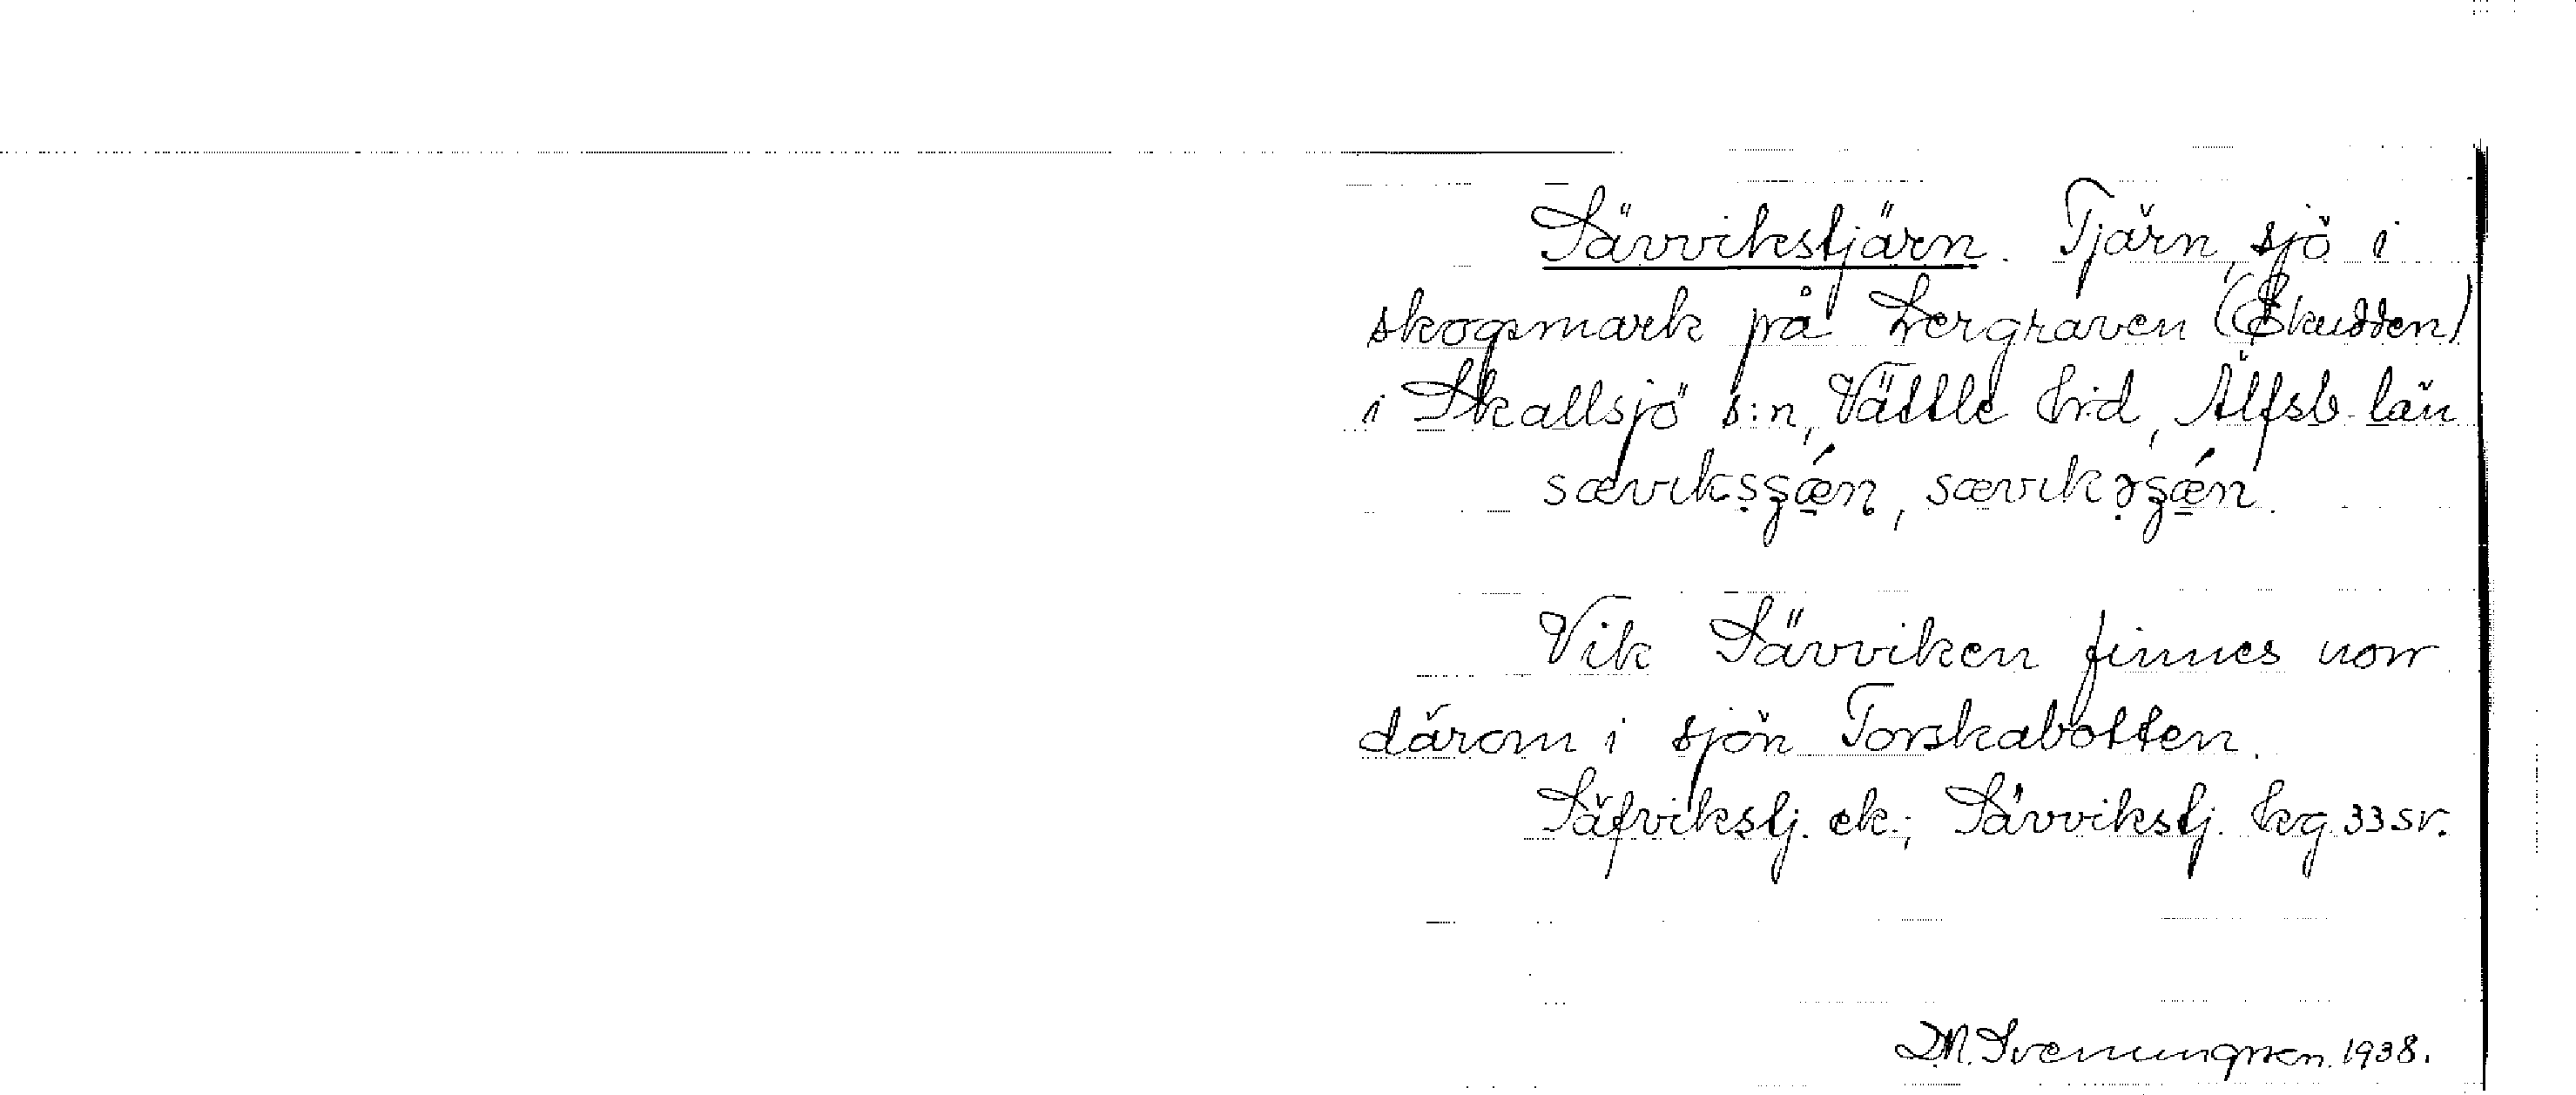 Sävvikstjärn. Tjärn, sjö i
skogsmark på Lergraven (Ekudden)
i Skallsjö s:n, Vättle hd, Älfsb. län
Vik Sävviken finnes norr
därom i sjön Torskabotten.
Säfvikstj. ek.; Sävvikstj. kg 33 sv.
D.N. Svenungsson. 1938.